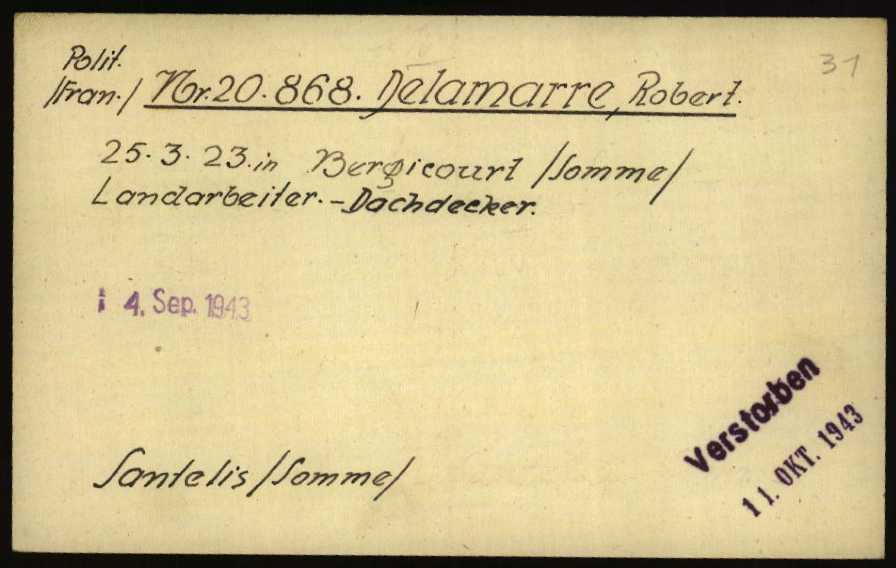 Polit. 31
/Fran./ Nr. 20.868. Delamarre, Robert.
25.3.23. in Bergicourt /Somme/
Landarbeiter. - Dachdecker.
1 4. Sep. 1943
Verstorben
11. OKT. 1943
Santelis /Somme/